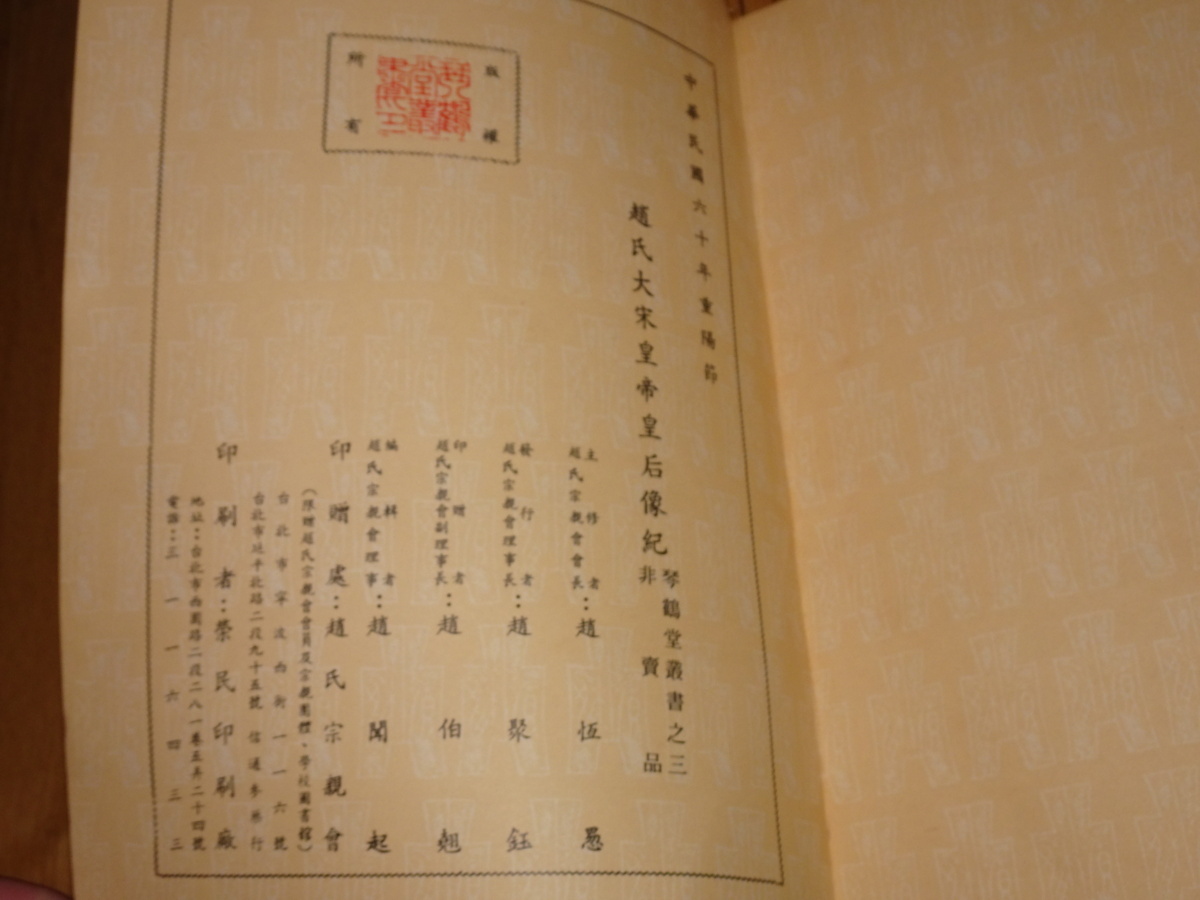 中華民國六十年重陽節
趙氏大宋皇帝皇后像紀
琴鶴堂叢書之三
非賣品
主修者
趙氏宗親會會長：趙恆惖
發行者
趙氏宗親會理事長：趙聚鈺
印贈者
趙氏宗親會副理事長：趙伯翹
編輯者
趙氏宗親會理事：趙聞起
印贈處：趙氏宗親會
（限贈趙氏宗親會會員及宗親團體、學校圖書館）
台北市寧波西街一一六號
台北市延平北路二段九十五號 信通參藥行
印刷者：榮民印刷廠
地址：台北市西園路二段二八一巷五弄二十四號
電話：三一一六四三三
版權
所有
琴鶴堂叢書